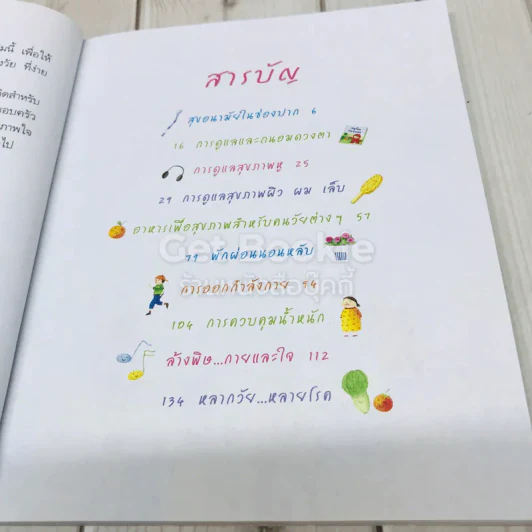 มนี้ เพื่อให้
งวัย ที่ง่าย
กิดสำหรับ
รอบครัว
ภาพใจ
ไป
สารบัญ
สุขอนามัยในช่องปาก 6
16 การดูแลและถนอมดวงตา
การดูแลสุขภาพหู 25
29 การดูแลสุขภาพผิว ผม เล็บ
อาหารเพื่อสุขภาพสำหรับคนวัยต่างๆ 57
77 พักผ่อนนอนหลับ
Get Bookie
ร้านหนังสือบุ๊คกี้
การออกกำลังกาย 94
104 การควบคุมน้ำหนัก
ล้างพิษ...กายและใจ 112
134 หลากวัย...หลายโรค